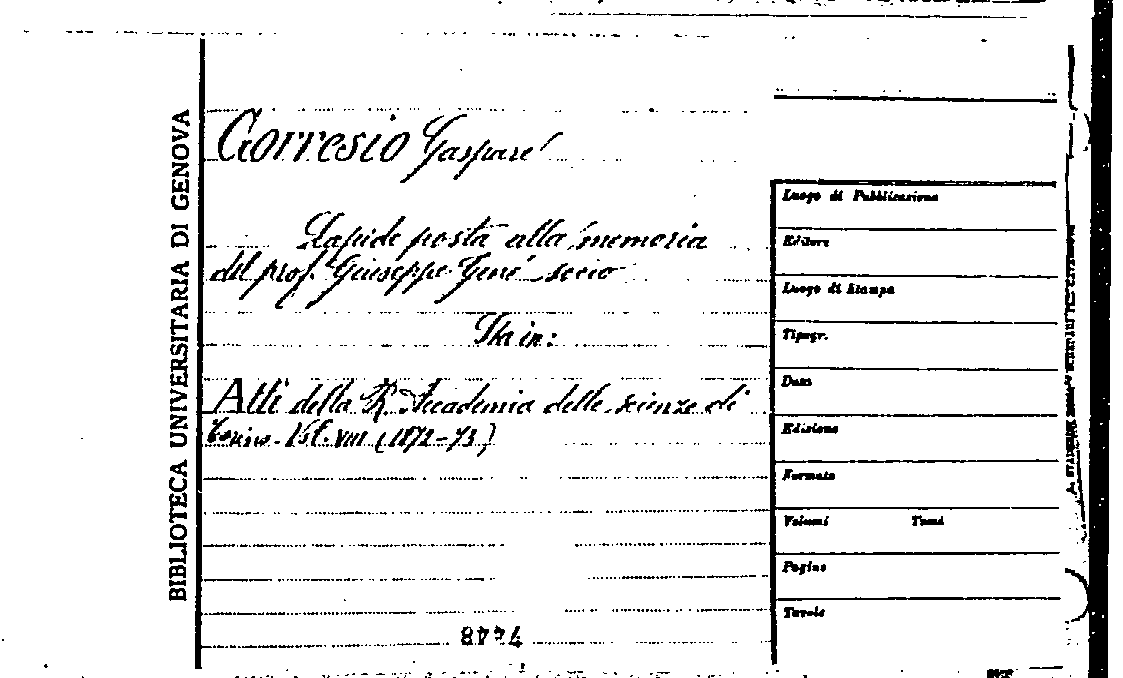 BIBLIOTECA UNIVERSITARIA DI GENOVA
Gorresio Gaspare
Lapide posta alla memoria
del prof. Giuseppe Gené socio
Sta in:
Atti della R. Accademia delle scienze di
Torino. Vol. VIII (1872-73)
7448
Luogo di Pubblicazione
Editore
Luogo di Stampa
Tipogr.
Data
Edizione
Formato
Volumi Tomi
Pagine
Tavole